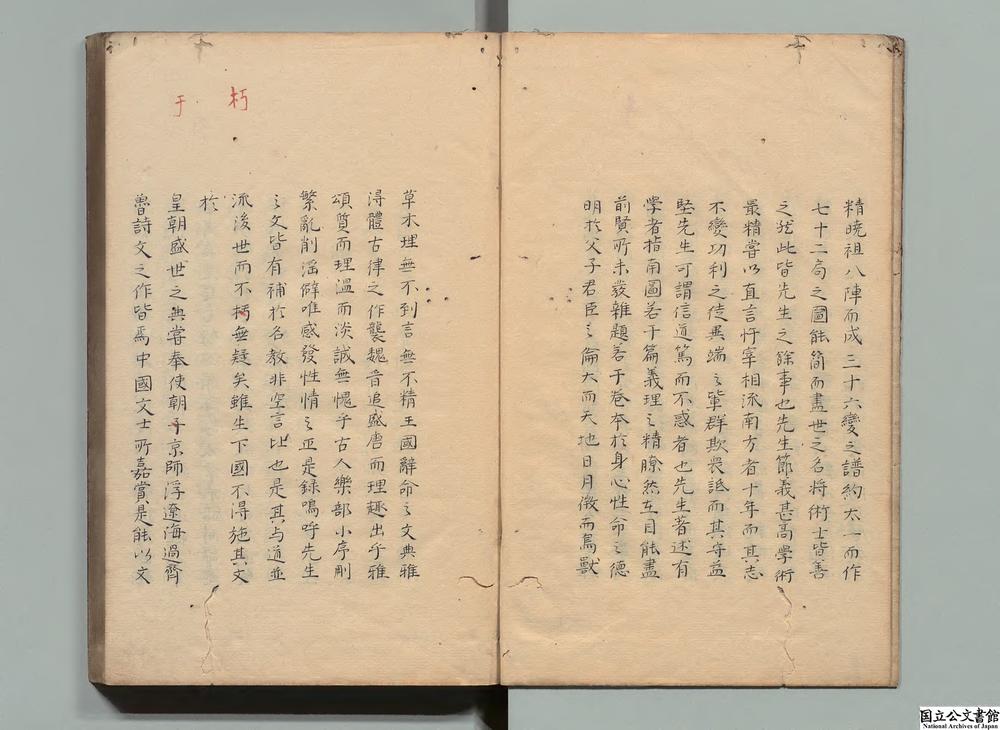 精曉祖八陣而成三十六變之譜約太一而作
七十二局之圖能簡而盡世之名將術士皆善
之然此皆先生之餘事也先生節義甚高學術
最精嘗以直言忤宰相流南方者十年而其志
不變功利之徒異端之輩群欺衆詆而其守益
堅先生可謂信道篤而不惑者也先生著述有
學者指南圖若干篇義理之精瞭然在目能盡
前賢所未發雜題若干卷本於身心性命之德
明於父子君臣之倫大而天地日月微而鳥獸
草木理無不到言無不精王國辭命之文典雅
得體古律之作襲魏晉追盛唐而理趣出乎雅
頌質而理溫而淡誠無愧乎古人樂部小序刪
繁亂削淫僻唯感發性情之正是錄嗚呼先生
之文皆有補於名教非空言比也是其与道並
流後世而不朽無疑矣雖生下國不得施其文
於
皇朝盛世之典嘗奉使朝于京師浮遼海過齊
魯詩文之作皆爲中國文士所嘉賞是能以文
朽
于
国立公文書館
National Archives of Japan